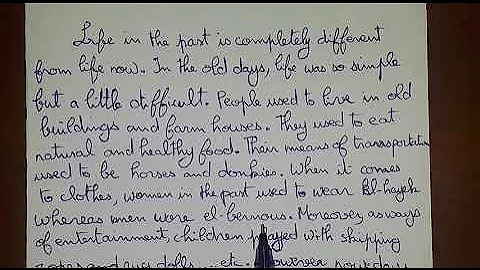 Life in the past is completely different
from life now. In the old days, life was so simple
but a little difficult. People used to live in old
buildings and farm houses. They used to eat
natural and healthy food. Their means of transportation
used to be horses and donkies. When it comes
to clothes, women in the past used to wear El-hayek
whereas men wore el-bernous. Moreover, as ways
of entertainment, children played with skipping
ropes and rug dolls ... etc. However nowadays